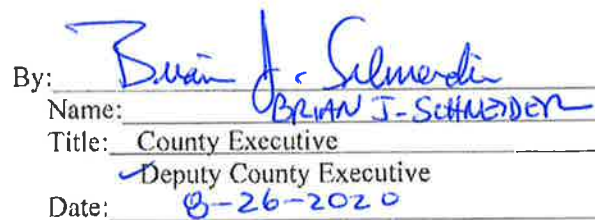 By: Brian J. Schneider
Name: BRIAN J-SCHNEIDER
Title: County Executive
✓Deputy County Executive
Date: 8-26-2020